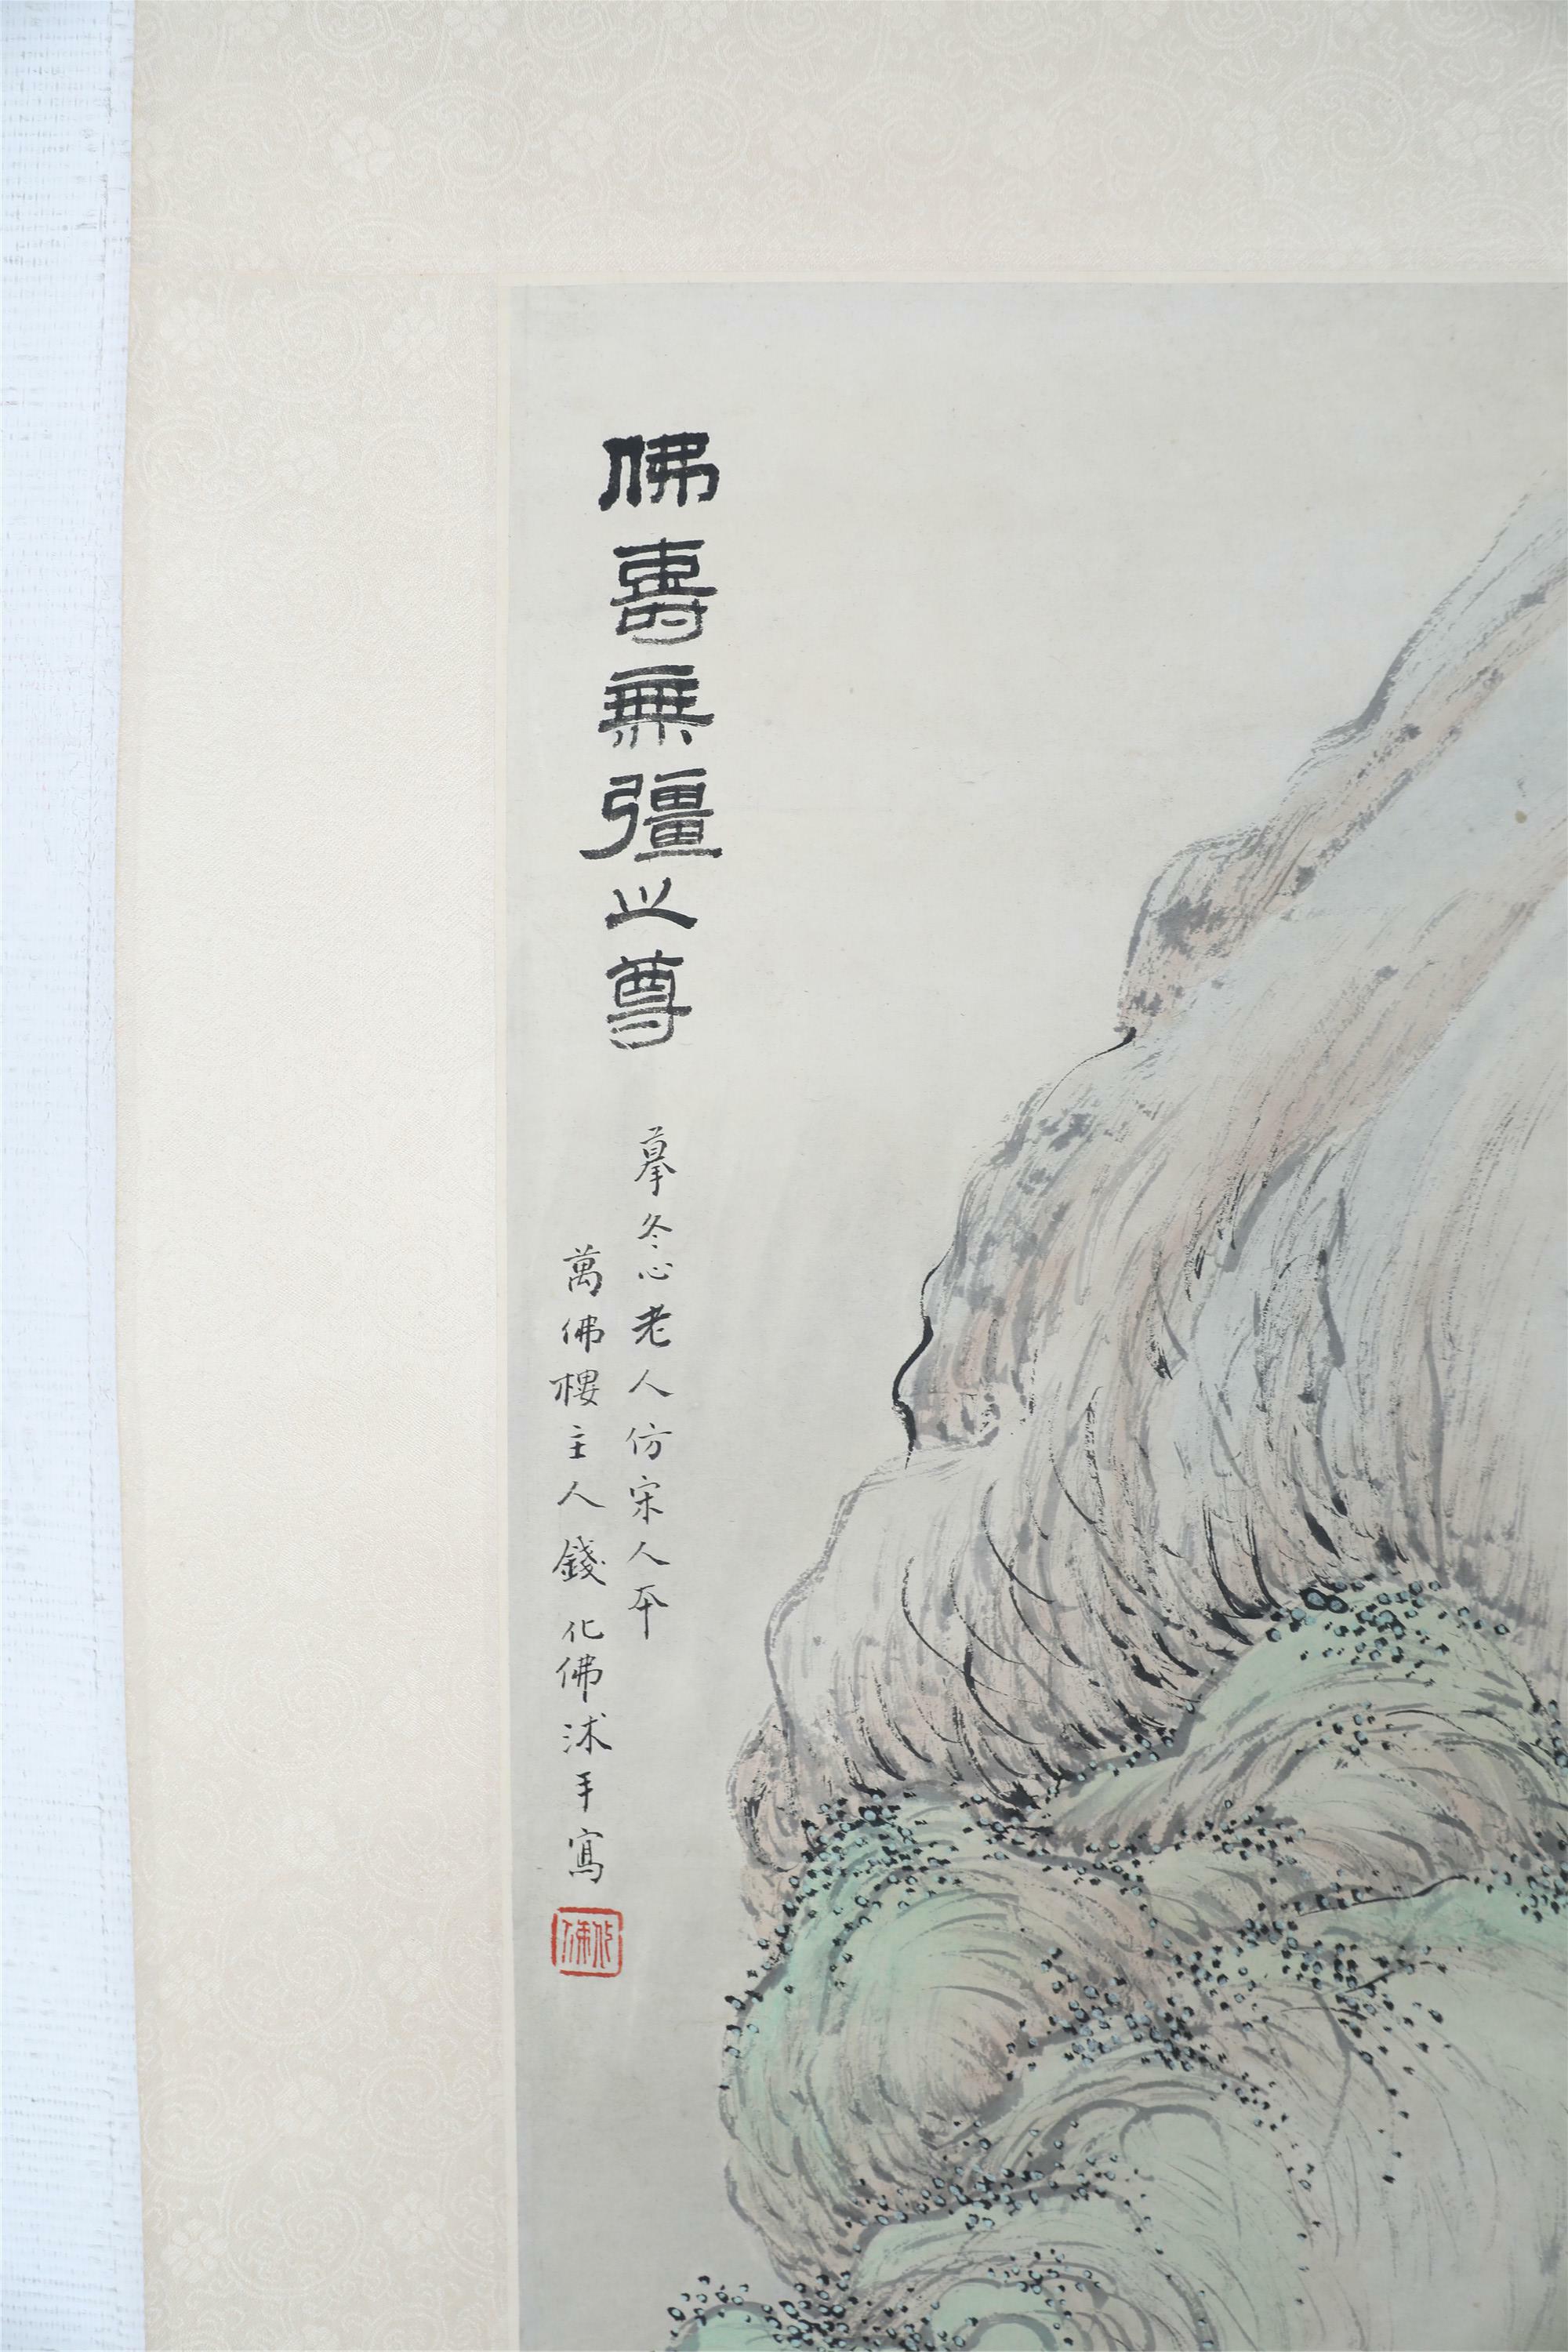 佛壽無彊之尊
摹冬心老人仿宋人本
萬佛樓主人錢化佛沭手寫
化佛